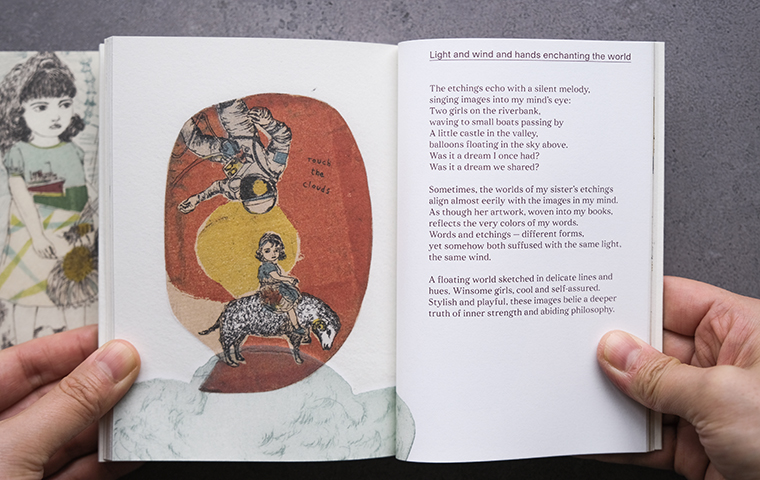 touch
the
clouds
Light and wind and hands enchanting the world
The etchings echo with a silent melody,
singing images into my mind's eye:
Two girls on the riverbank,
waving to small boats passing by
A little castle in the valley,
balloons floating in the sky above.
Was it a dream I once had?
Was it a dream we shared?
Sometimes, the worlds of my sister's etchings
align almost eerily with the images in my mind.
As though her artwork, woven into my books,
reflects the very colors of my words.
Words and etchings — different forms,
yet somehow both suffused with the same light,
the same wind.
A floating world sketched in delicate lines and
hues. Winsome girls, cool and self-assured.
Stylish and playful, these images belie a deeper
truth of inner strength and abiding philosophy.